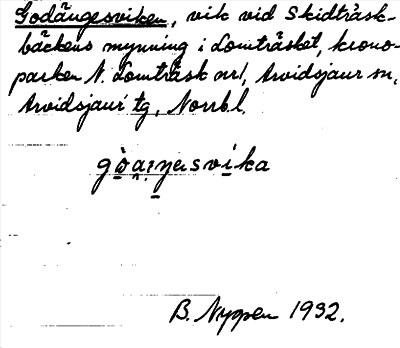 Godängesviken, vik vid Skidträsk-
bäckens mynning i Lomträsket, krono-
parken N. Lomträsk nr 1, Arvidsjaur sn,
Arvidsjaur tg, Norrb. l.
B. Nyppen 1932.